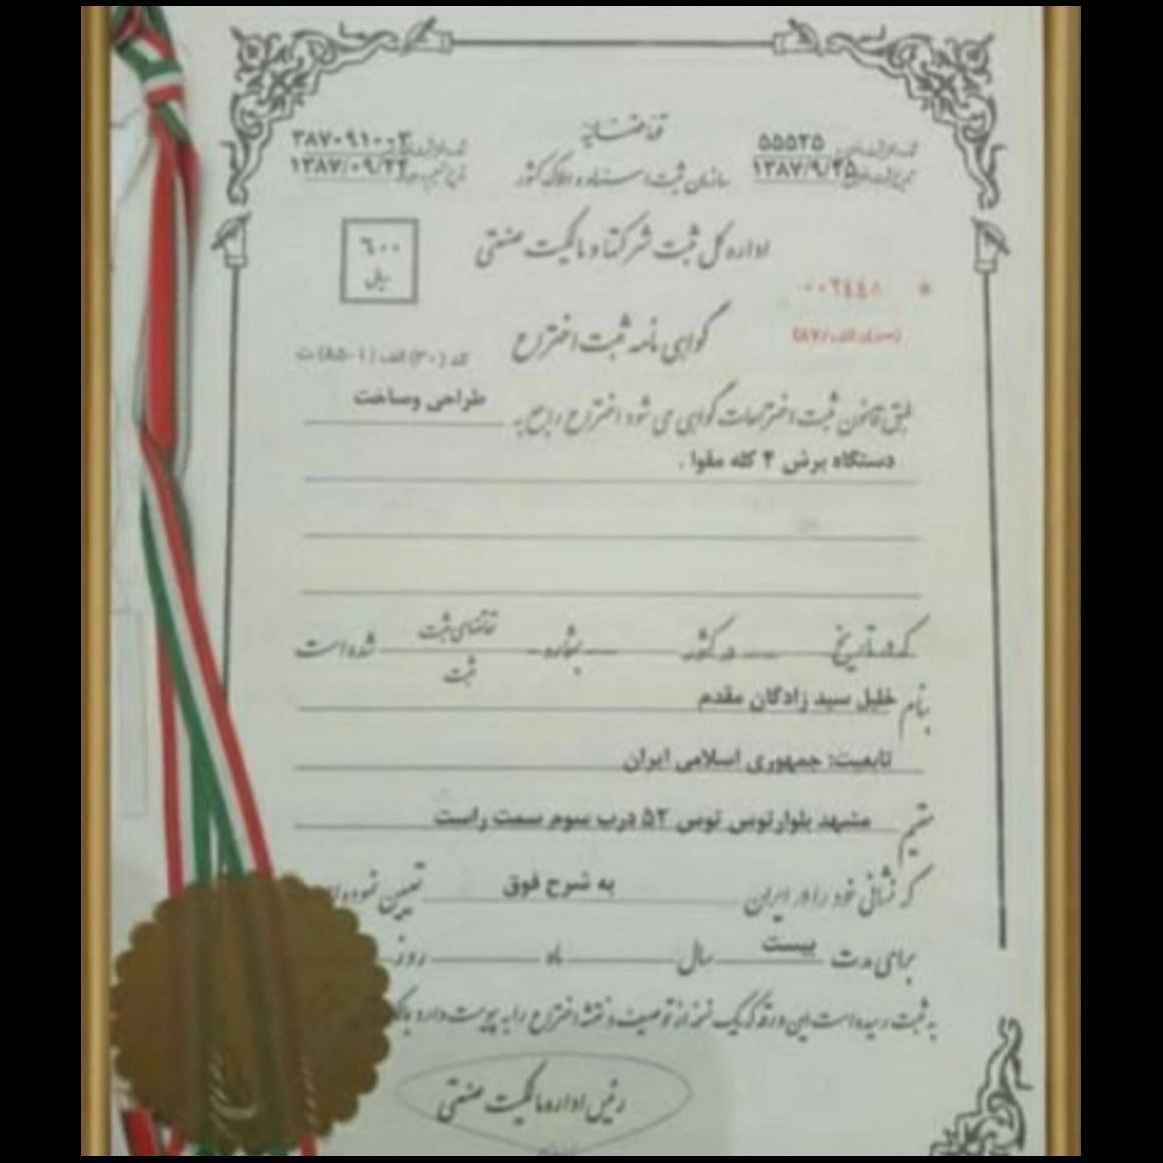 قوه قضائیه
شماره ثبت اختراع ۵۵۵۲۵
تاریخ ثبت اختراع ۱۳۸۷/۹/۲۵
سازمان ثبت اسناد و املاک کشور
۳۸۷۰۹۱۰۰۳
۱۳۸۷/۰۹/۲۴
اداره کل ثبت شرکتها و مالکیت صنعتی
۶۰۰
ریال
* ۰۰۲٤٤۸
گواهی نامه ثبت اختراع
طبق قانون ثبت اختراعات گواهی می شود اختراع راجع به طراحی وساخت
دستگاه برش ۴ کله مقوا .
که در تاریخ در کشور بشماره تقاضای ثبت شده است
ثبت
بنام خلیل سید زادگان مقدم
تابعیت: جمهوری اسلامی ایران
مقیم مشهد بلوارتوس توس ۵۲ درب سوم سمت راست
که نشانی خود را در ایران به شرح فوق تعیین نموده
برای مدت بیست سال ماه روز
به ثبت رسیده است این ورقه که یک نسخه از توصیف و نقشه اختراع را به پیوست دارد
رئیس اداره مالکیت صنعتی